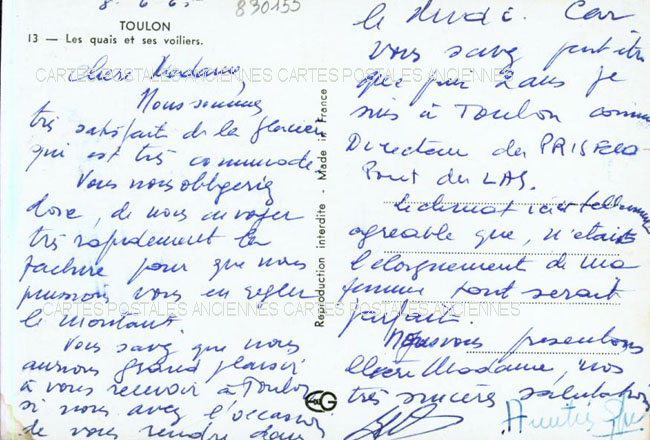 8. 6. 65
830155
TOULON
13 — Les quais et ses voiliers.
Chère Madame,
Nous sommes
très satisfaits de la glacière
qui est très commode
Vous nous obligeriez
donc, de nous envoyer
très rapidement la
facture pour que nous
puissions vous en régler
le montant.
Vous savez que nous
aurions grand plaisir
à vous recevoir à Toulon
si nous avez l'occasion
de vous rendre dans
Reproduction interdite - Made in France
le Midi. Car
vous savez peut être
que pour 2 ans je
suis à Toulon comme
Directeur du PRISUNIC
Pont du LAS.
Le climat ici est tellement
agréable que, n'était
l'éloignement de ma
femme tout serait
parfait.
Nous vous présentons
chère Madame, nos
très sincères salutations
CARTES POSTALES ANCIENNES CARTES POSTALES ANCIENNES
CARTES POSTALES ANCIENNES CARTES POSTALES ANCIENNES